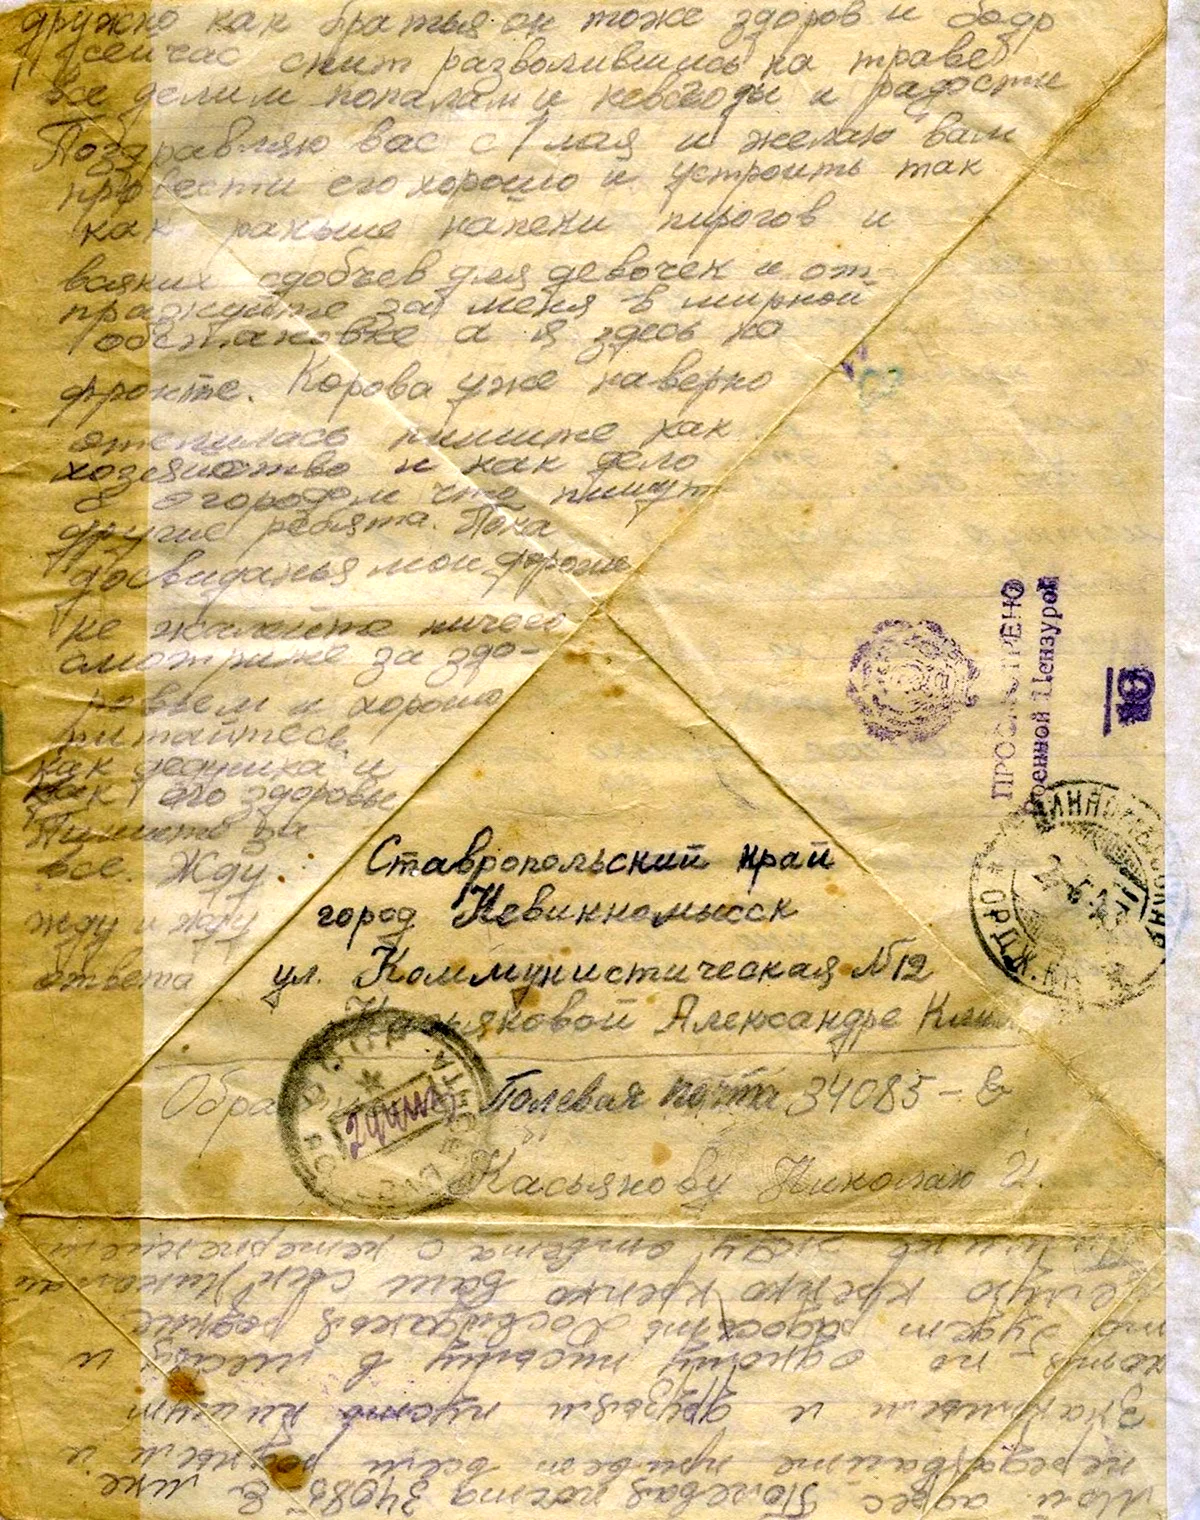 дружно как братья он тоже здоров и бодр
сейчас спит развалившись на траве
Все делим попалам и невзгоды и радости
Поздравляю вас с 1 мая и желаю вам
провести его хорошо и устроить так
как раньше напеки пирогов и
всяких сдобчев для девочек и от-
празнуйте за меня в мирной
обстановке а я здесь на
фронте. Корова уже наверно
отелилась пишите как
хозяйство и как дело
с огородом что пишут
другие ребята. Пока
досвиданья мои дорогие
не жалейте ничего
смотрите за здо-
ровьем и хорошо
питайтесь.
как дедушка и
как его здоровье
Пишите за
все. Жду
жду и жду
ответа
ПРОСМОТРЕНО
Военной Цензурой
10
Ставропольский край
город Невинномысск
ул. Коммунистическая №12
Касьяковой Александре
Полевая почта 34085-В
Касьянову Николаю И.
Мой адрес Полевая почта 34085 В
передавайте привет всем родным и
знакомым и друзьям пусть пишут
хотя по одному письму в месяц и
то будет радость Досвиданья родные
целую крепко крепко ваш сын Николай
жду ответа с нетерпением